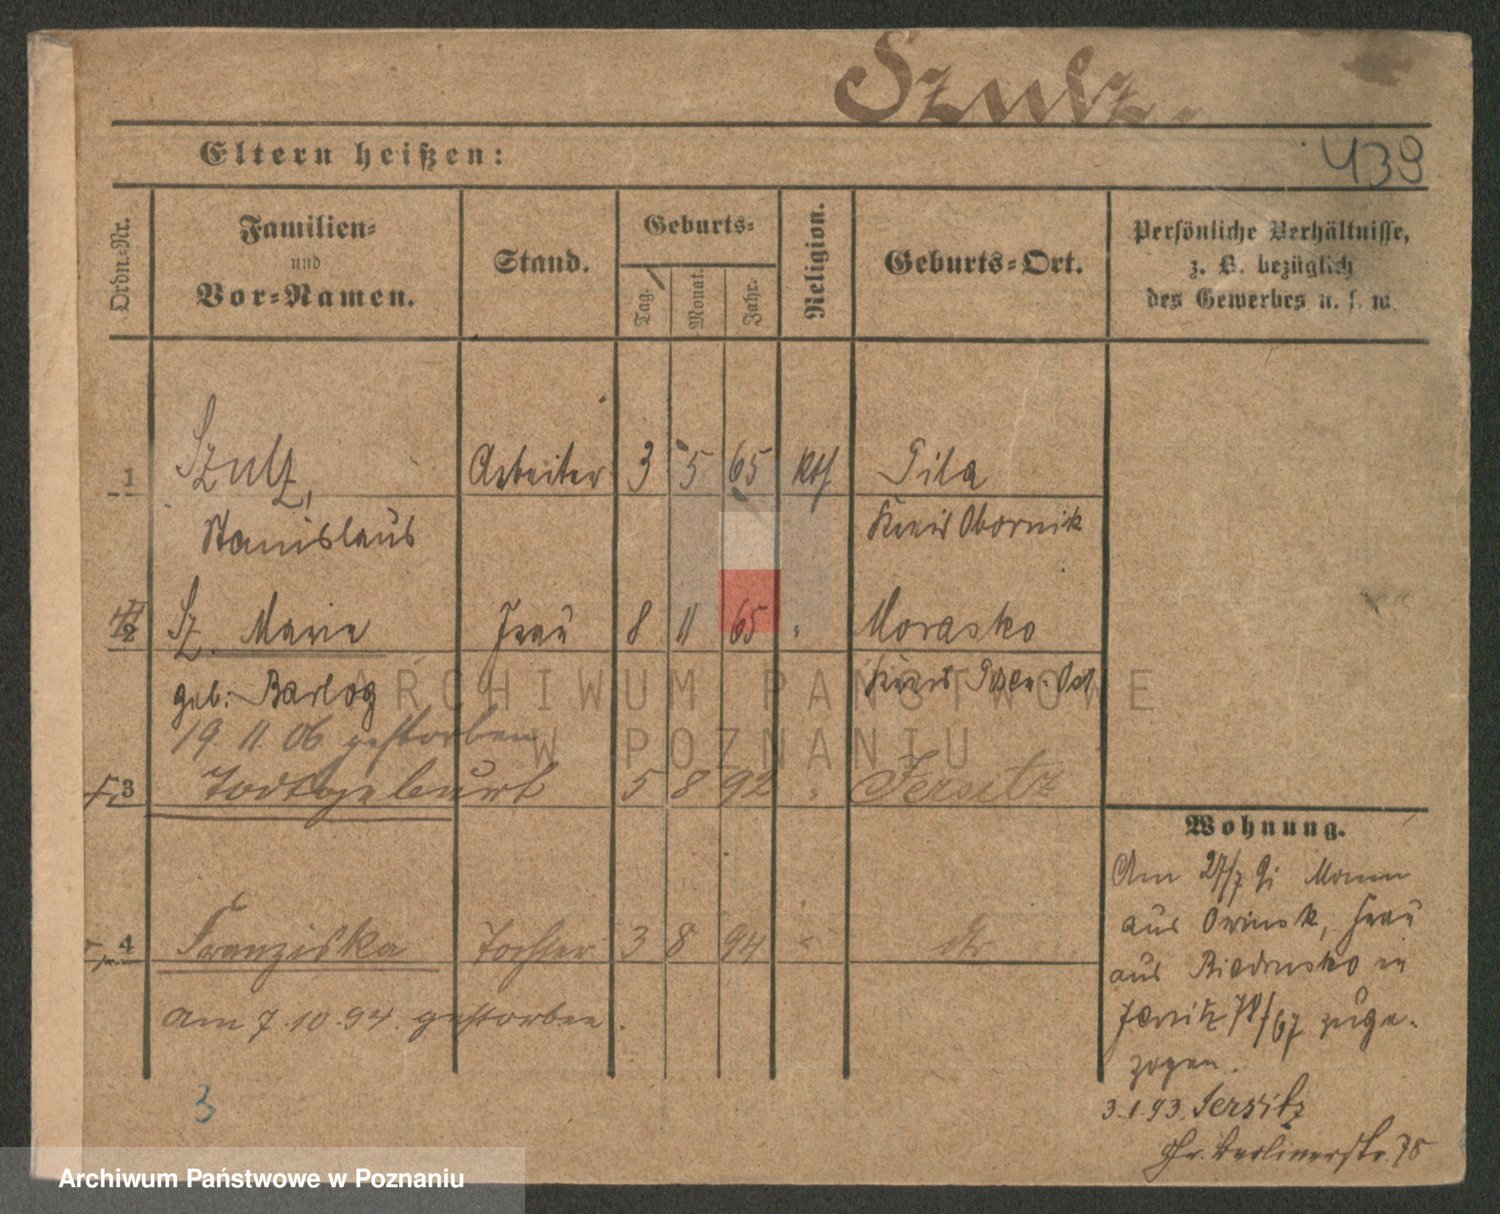 Szulz.
Eltern heißen:
439
Ordn.-Nr.
Familien-
und
Vor-Namen.
Stand.
Geburts-
Tag.
Monat.
Jahr.
Religion.
Geburts-Ort.
Persönliche Verhältnisse,
z. B. bezüglich
des Gewerbes u. s. w.
1 Szulz, Arbeiter 3 5 65 kth Pila
Stanislaus Kreis Obornik
2 Sz. Marie Frau 8 11 65 " Morasko
geb: Barlog Kreis Posen-Ost
19.11.06 gestorben
3 Todtgeburt 5 8 92 " Jersitz
4 Franziska Tochter 3 8 94 " do
am 7.10.94. gestorben.
3
Wohnung.
Am 27/7 91 Mann
aus Owinsk, Frau
aus Biedrusko in
Jersitz /67 zuge-
zogen.
3.1.93. Jersitz
Gr. Berlinerstr. 78
ARCHIWUM PAŃSTWOWE
W POZNANIU
Archiwum Państwowe w Poznaniu